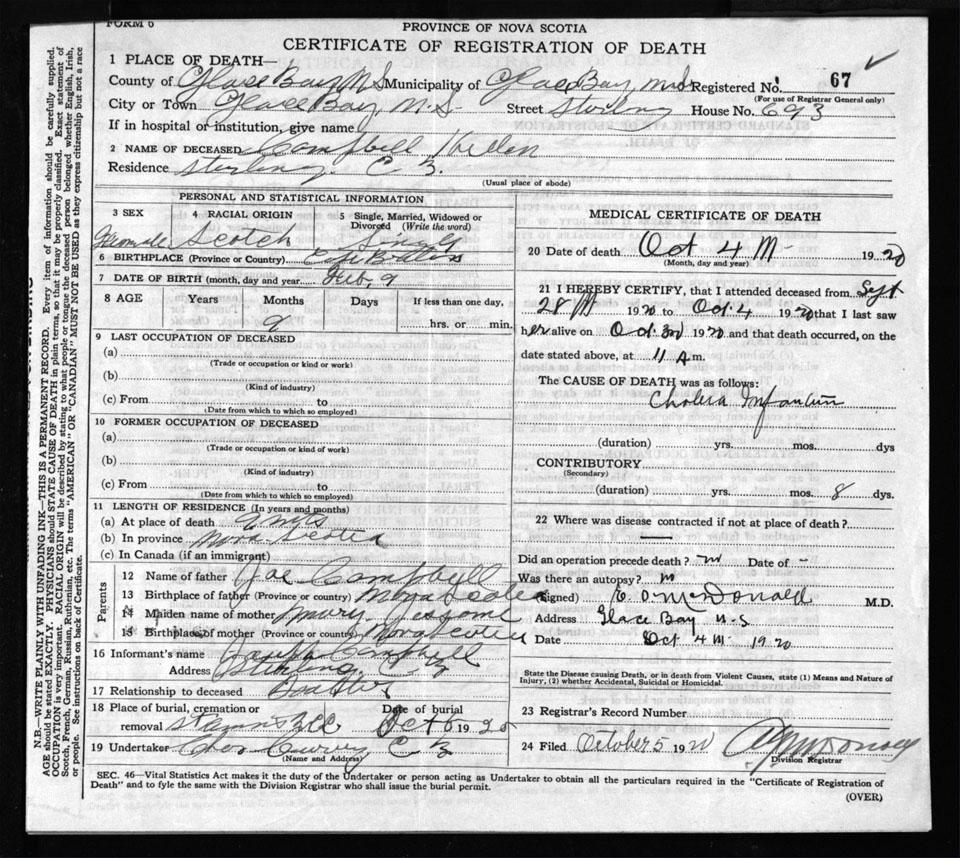 FORM 6
PROVINCE OF NOVA SCOTIA
CERTIFICATE OF REGISTRATION OF DEATH
1 PLACE OF DEATH—
County of Glace Bay N.S. Municipality of Glace Bay Registered No. 67
(For use of Registrar General only)
City or Town Glace Bay, N.S. Street Sterling House No. 693
If in hospital or institution, give name
2 NAME OF DECEASED Campbell Hellen
Residence Sterling C.B.
(Usual place of abode)
PERSONAL AND STATISTICAL INFORMATION
3 SEX
4 RACIAL ORIGIN
5 Single, Married, Widowed or Divorced (Write the word)
Female Scotch Single
6 BIRTHPLACE (Province or Country) Cape Breton
7 DATE OF BIRTH (month, day and year) Feb. 9
8 AGE Years Months Days If less than one day,
9 hrs. or min.
9 LAST OCCUPATION OF DECEASED
(a)
(Trade or occupation or kind or work)
(b)
(Kind of industry)
(c) From to
(Date from which to which so employed)
10 FORMER OCCUPATION OF DECEASED
(a)
(Trade or occupation or kind of work)
(b)
(Kind of industry)
(c) From to
(Date from which to which so employed)
11 LENGTH OF RESIDENCE (In years and months)
(a) At place of death 9 mts
(b) In province Nova Scotia
(c) In Canada (if an immigrant)
Parents
12 Name of father Joe Campbell
13 Birthplace of father (Province or country) Nova Scotia
14 Maiden name of mother Mary Jessome
15 Birthplace of mother (Province or country) Nova Scotia
16 Informant's name Campbell
Address Sterling C B
17 Relationship to deceased
18 Place of burial, cremation or removal Date of burial
Oct 6 1920
19 Undertaker Curry C B
(Name and Address)
MEDICAL CERTIFICATE OF DEATH
20 Date of death Oct 4th 1920
(Month, day and year)
21 I HEREBY CERTIFY, that I attended deceased from Sept
28th 1920 to Oct. 4 1920 that I last saw
her alive on Oct 3rd 1920 and that death occurred, on the
date stated above, at 11 A.m.
The CAUSE OF DEATH was as follows:
Cholera Infantum
(duration) yrs. mos. dys
CONTRIBUTORY
(Secondary)
(duration) yrs. mos. 8 dys.
22 Where was disease contracted if not at place of death?
—
Did an operation precede death? no Date of -
Was there an autopsy? no
(Signed) E. O. McDonald M.D.
Address Glace Bay N.S
Date Oct 4th 1920
State the Disease causing Death, or in death from Violent Causes, state (1) Means and Nature of Injury, (2) whether Accidental, Suicidal or Homicidal.
23 Registrar's Record Number
24 Filed October 5 1920 McDonald
Division Registrar
SEC. 46—Vital Statistics Act makes it the duty of the Undertaker or person acting as Undertaker to obtain all the particulars required in the "Certificate of Registration of
Death" and to fyle the same with the Division Registrar who shall issue the burial permit.
(OVER)
N.B.—WRITE PLAINLY WITH UNFADING INK—THIS IS A PERMANENT RECORD. Every item of information should be carefully supplied.
AGE should be stated EXACTLY. PHYSICIANS should STATE CAUSE OF DEATH in plain terms, so that it may be properly classified. Exact statement of
OCCUPATION is very important. RACIAL ORIGIN will be described by stating to what people or tongue the deceased person belonged, whether English, Irish,
Scotch, French, German, Russian, Ruthenian, etc. The terms "AMERICAN" OR "CANADIAN" MUST NOT BE USED as they express citizenship but not a race
or people. See instructions on back of Certificate.